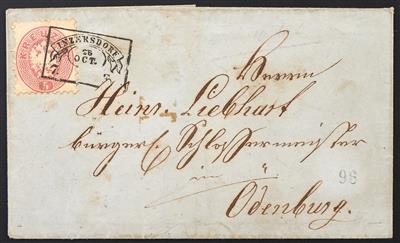 KREUZER
5
INZERSDORF
26
OCT.
Herrn
Heinr. Liebhart
bürgerl. Schlossermeister
in
Ödenburg.
96